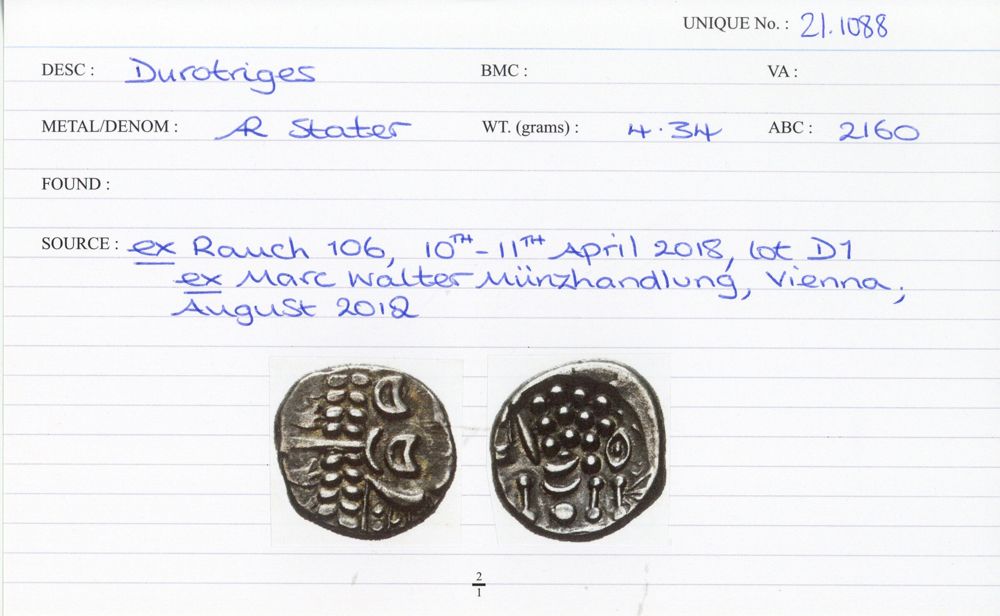 UNIQUE No. : 21.1088
DESC : Durotriges BMC : VA :
METAL/DENOM : AR Stater WT. (grams) : 4.34 ABC : 2160
FOUND :
SOURCE : ex Rauch 106, 10TH-11TH April 2018, lot D1
ex Marc Walter Münzhandlung, Vienna,
August 2018
2
1